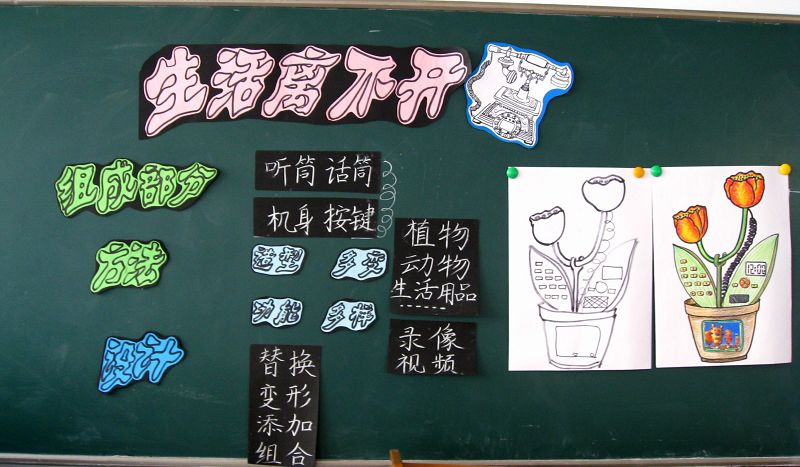 生活离不开
组成部分
听筒 话筒
机身 按键
方法
造型 多变
功能 多样
植物
动物
生活用品
录像
视频
设计
替换
变形
添加
组合
12:02